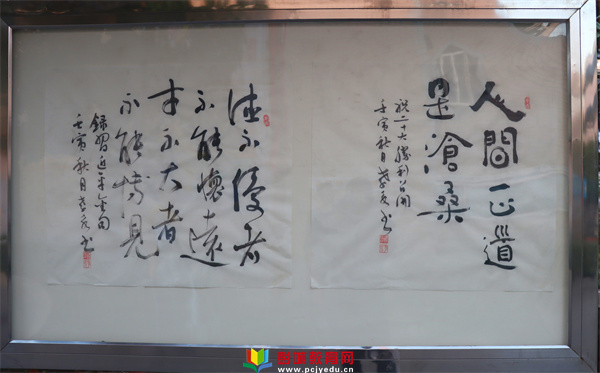 人間正道
是滄桑
祝二十大勝利召開
壬寅秋月
德不優者
不能懷遠
才不大者
不能博見
錄習近平
壬寅秋月
教育网
www.pcjyedu.cn